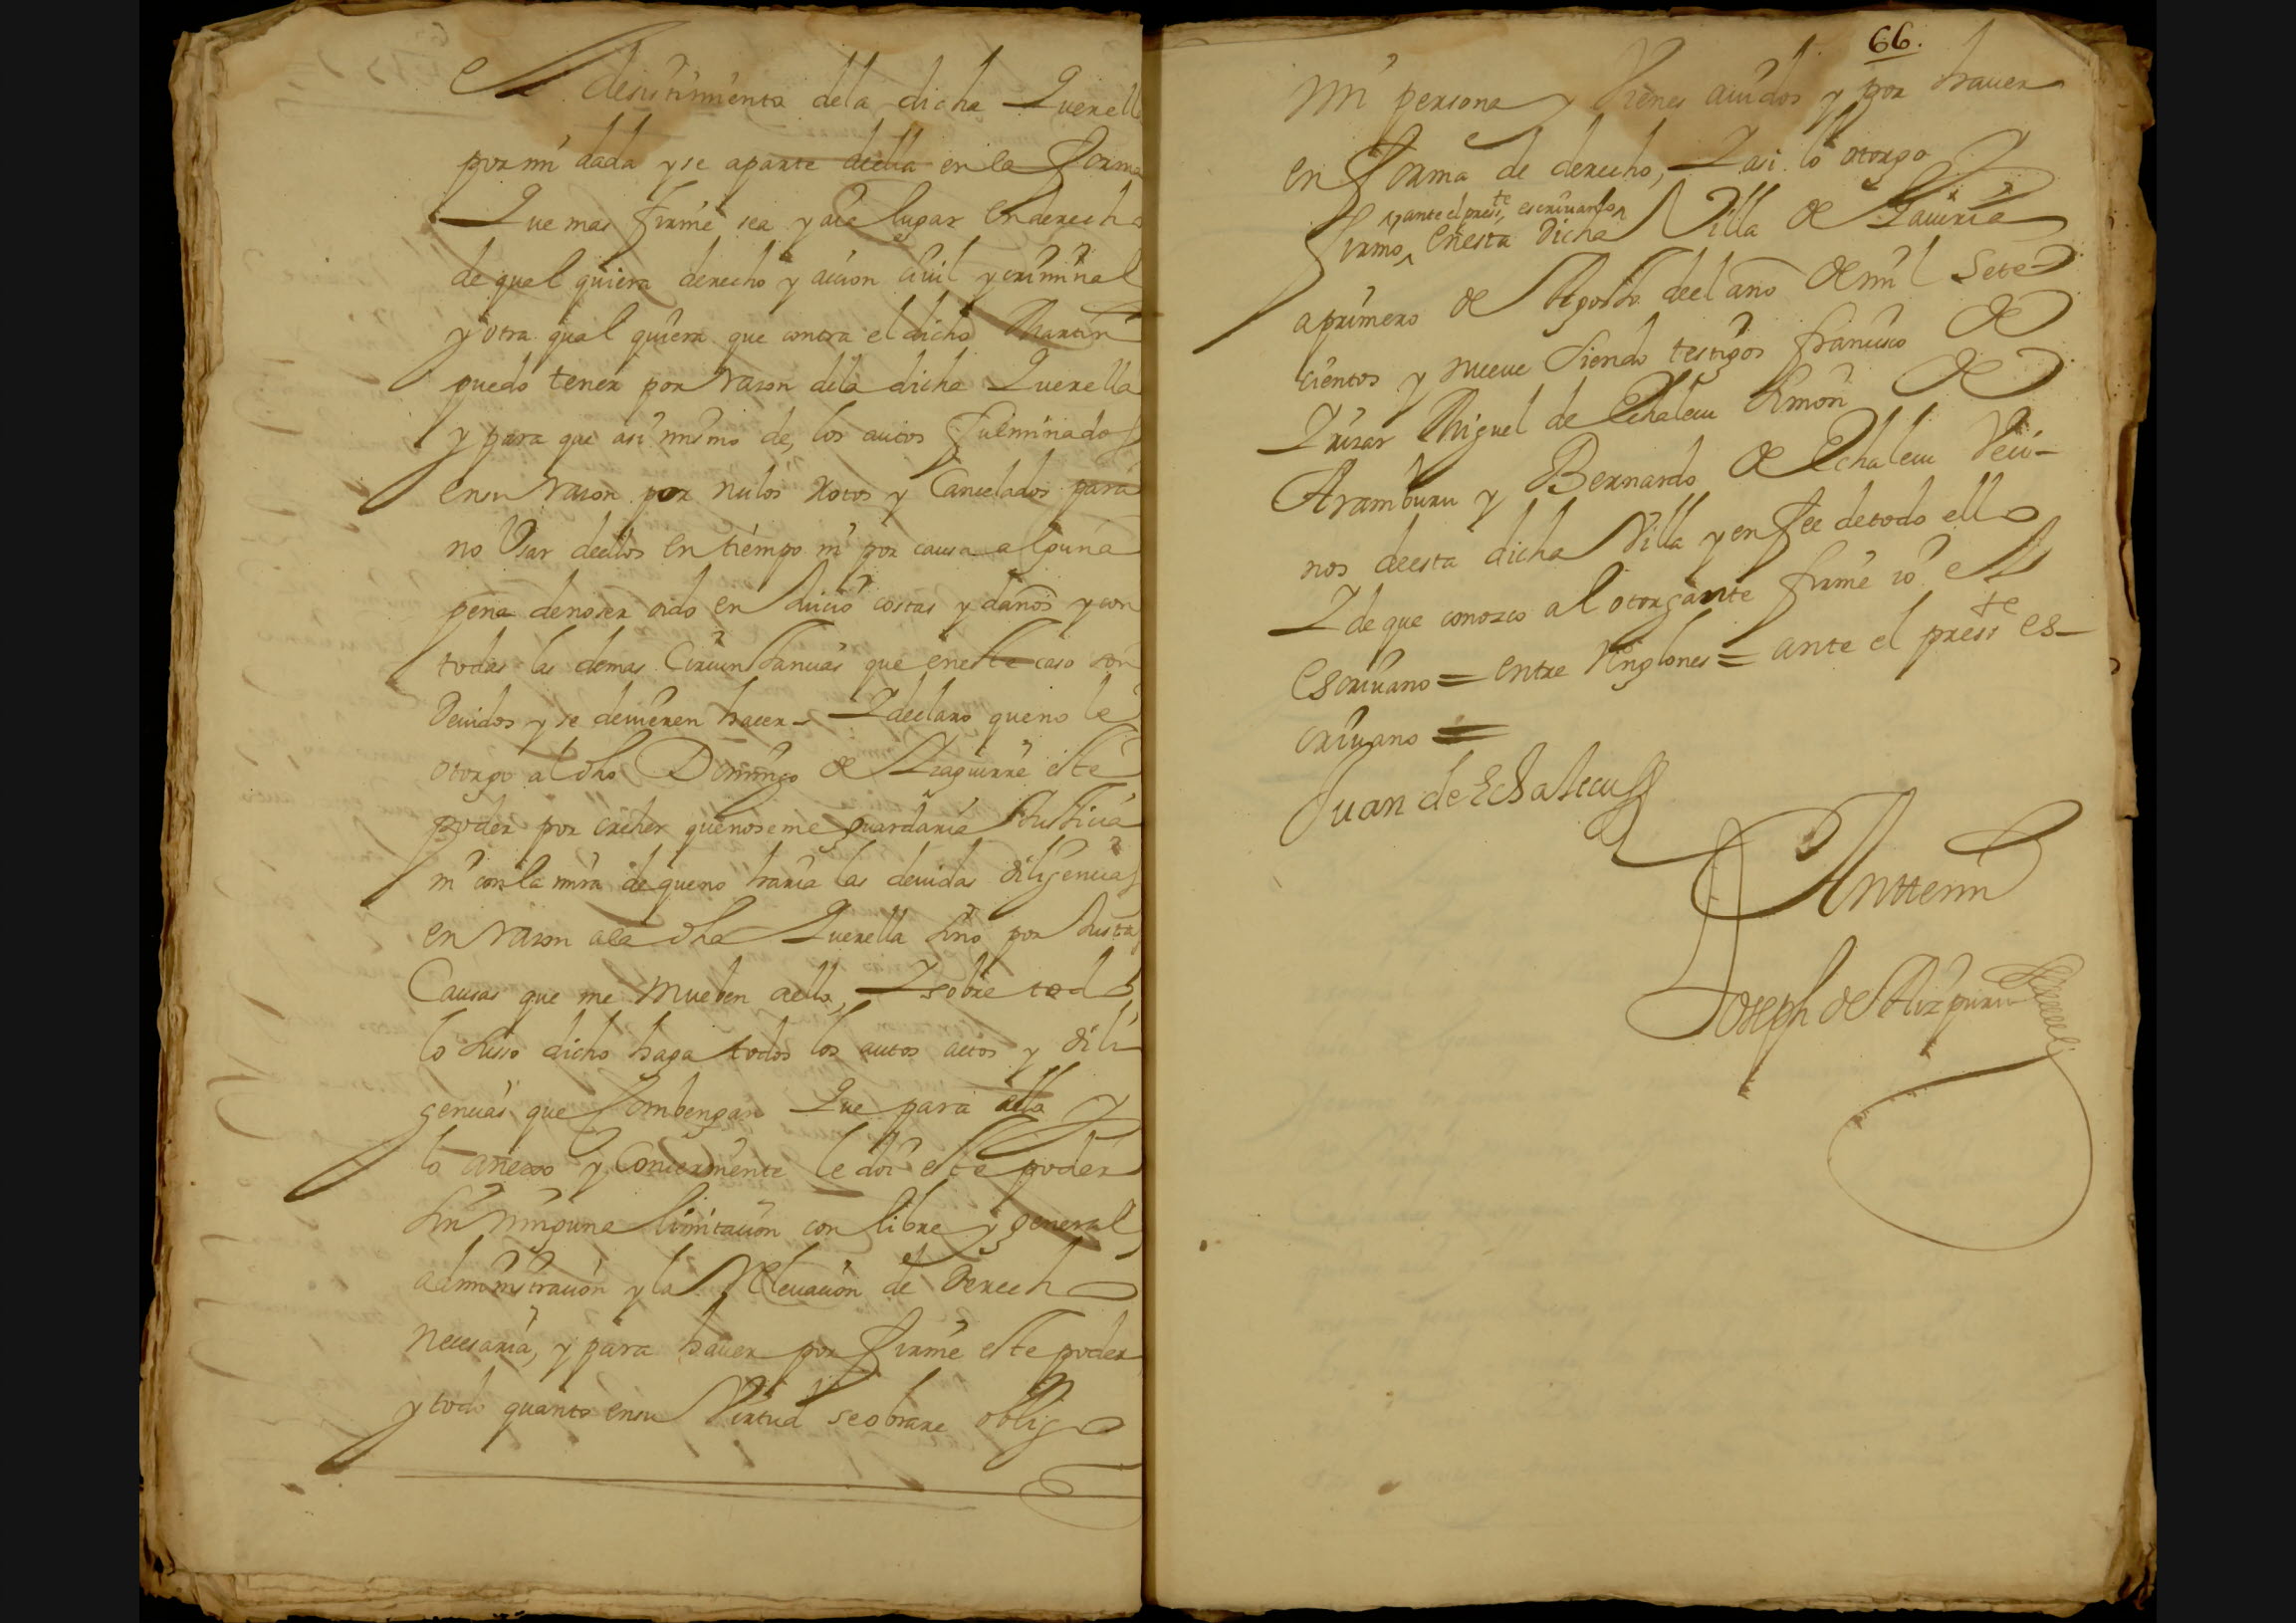 el desistimiento dela dicha Querella
por mi dada y se aparte deella en la forma
Que mas firme sea y aia lugar en derecho
de qual quiera derecho y accion ciuil y criminal
y otra qual quiera que contra el dicho Martin
puedo tener por razon dela dicha Querella
y para que asi mismo de, los autos fulminados
en su razon por nulos rotos y Cancelados para
no Vsar deellos en tiempo ni por causa alguna
pena de no ser oido en Juicio costas y daños y con
todas las demas Circunstancias que en este caso son
Deuidos y se deuieren hacer - Y declaro que no le
otorgo al dho Domingo de Yzaguirre este
poder por creher que no se me guardaria Justicia
ni con la mira de que no haria las deuidas diligencias
en razon a la dha Querella sino por Justas
Causas que me mueben aello, Y sobre todo
lo suso dicho haga todos los autos actos y dili
gencias que Combengan Que para ello y
lo anexo y Concerniente le doi este poder
sin ninguna limitacion con libre y general
administracion y la Releuacion de derecho
necesaria, y para hauer por firme este poder
y todo quanto en su Virtud se obrare obligo
66.
mi persona y Vienes auidos y por hauer
en forma de derecho, Y asi lo otorgo y
^ y ante el press.te escriuano ^
firmo ^ en esta Dicha Villa de Gauiria
a primero de Agosto deel año de mil Sete-
cientos y nueue siendo testigos francisco de
Yrizar Miguel de Echalecu Simon de
Aramburu y Bernardo de Echalecu Veci-
nos deesta dicha Villa y en fee de todo ello
Y de que conozco al otorgante firme io el
escriuano = entre Ringlones = ante el press.te es-
criuano =
Juan de Echalecu
Antte mi
Joseph de Aizpuru